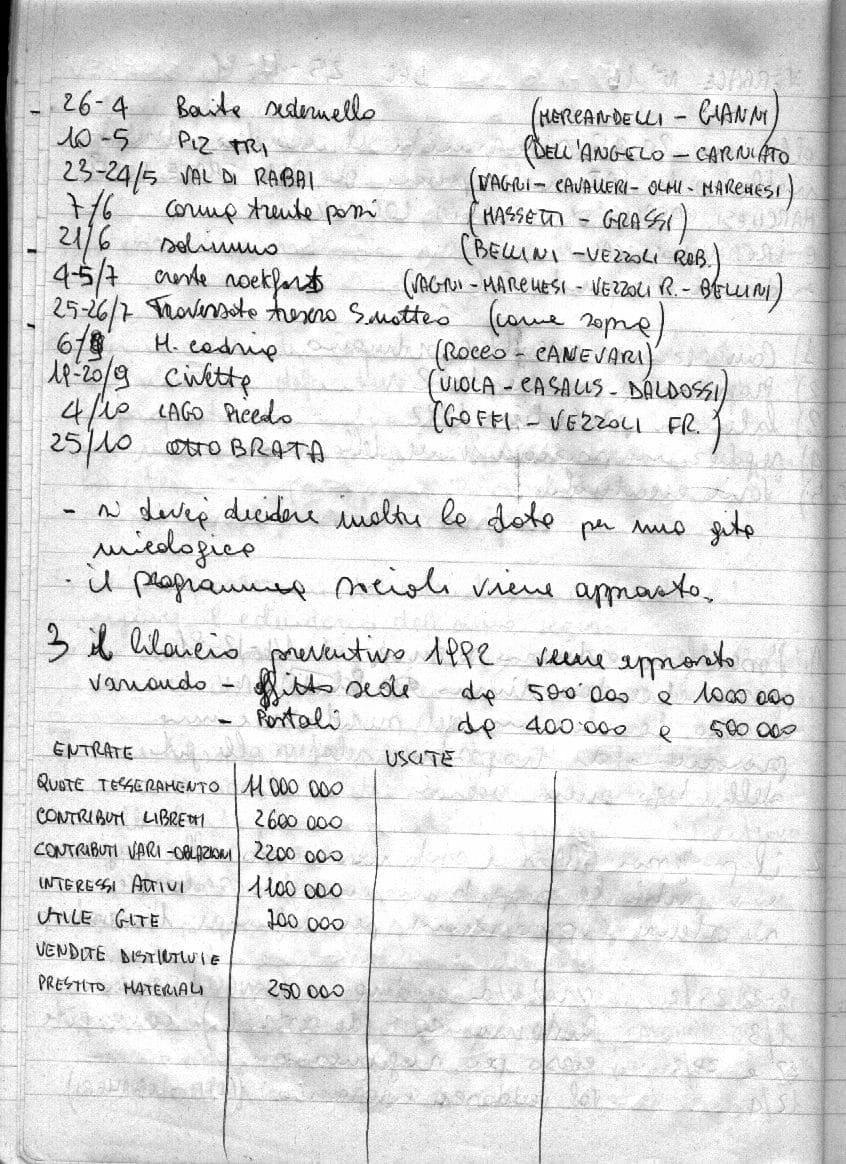 - 26-4 Baite (MERCANDELLI - GIANNI)
10-5 PIZ TRI (DELL'ANGELO - CARNIATO
23-24/5 VAL DI RABBI (VAGNI - CAVALLERI - OLMI - MARCHESI)
7/6 corna trenta passi (MASSETTI - GRASSI)
- 21/6 (BELLINI - VEZZOLI ROB.)
4-5/7 creste (VAGNI - MARCHESI - VEZZOLI R. - BELLINI)
25-26/7 Traversata tresero S. matteo (come sopra)
- 6/9 M. cadria (ROCCO - CANEVARI)
19-20/9 Civetta (VIOLA - CASALIS - DALDOSSI)
4/10 LAGO (GOFFI - VEZZOLI FR.)
25/10 OTTOBRATA
- si dovrà decidere inoltre la data per una gita
micologica
- il programma viene approvato.
3 il bilancio preventivo 1992 viene approvato
variando - affitto sede da 500'000 a 1000 000
- Postali da 400'000 a 500 000
ENTRATE USCITE
QUOTE TESSERAMENTO 11 000 000
CONTRIBUTI LIBRETTI 2600 000
CONTRIBUTI VARI - OBLAZIONI 2200 000
INTERESSI ATTIVI 1100 000
UTILE GITE 200 000
VENDITE DISTINTIVI E
PRESTITO MATERIALI 250 000